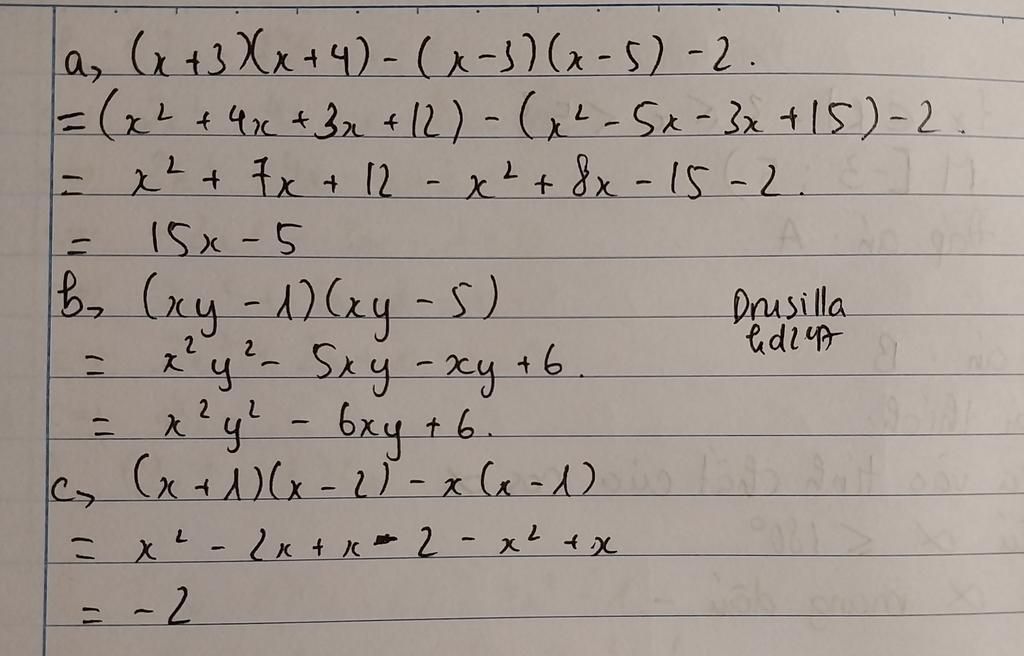 a, (x+3)(x+4) - (x-3)(x-5) - 2.
= (x² + 4x + 3x + 12) - (x² - 5x - 3x + 15) - 2.
= x² + 7x + 12 - x² + 8x - 15 - 2.
= 15x - 5
b, (xy - 1)(xy - 5)
Drusilla
= x²y² - 5xy - xy + 6.
= x²y² - 6xy + 6.
c, (x+1)(x-2) - x(x-1)
= x² - 2x + x - 2 - x² + x
= -2